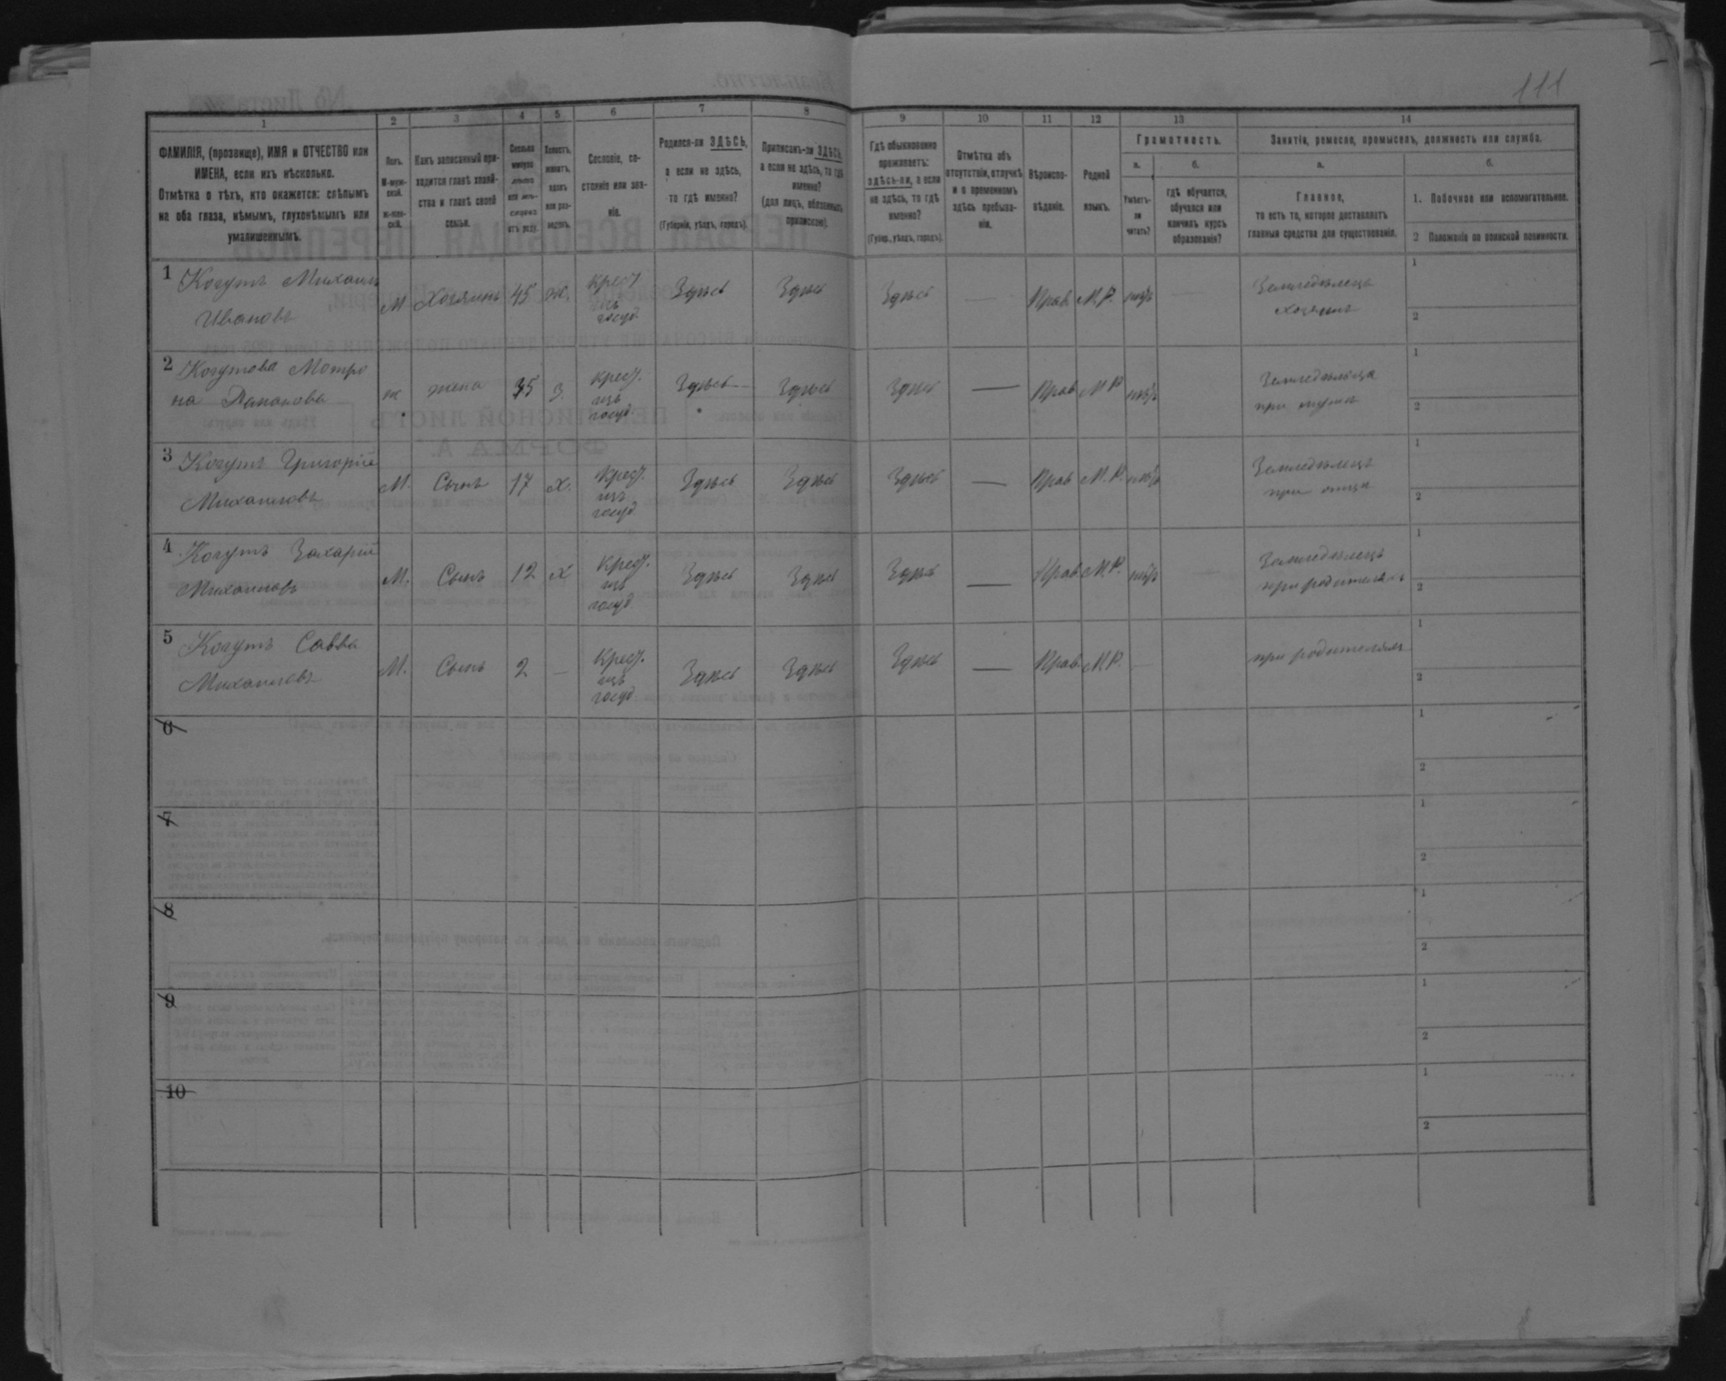 111
1 2 3 4 5 6 7 8 9 10 11 12 13 14
ФАМИЛІЯ, (прозвище), ИМЯ и ОТЧЕСТВО или
ИМЕНА, если ихъ нѣсколько.
Отмѣтка о тѣхъ, кто окажется: слѣпымъ
на оба глаза, нѣмымъ, глухонѣмымъ или
умалишеннымъ.
Полъ.
М-муж-
ской.
ж-жен-
скій.
Какъ записанный при-
ходится главѣ хозяй-
ства и главѣ своей
семьи.
Сколько
минуло
лѣтъ
или мѣ-
сяцевъ
отъ роду.
Холостъ,
женатъ,
вдовъ
или раз-
веденъ.
Сословіе, со-
стояніе или зва-
ніе.
Родился-ли ЗДѢСЬ,
а если не здѣсь,
то гдѣ именно?
(Губернія, уѣздъ, городъ).
Приписанъ-ли ЗДѢСЬ,
а если не здѣсь, то гдѣ
именно?
(для лицъ, обязанныхъ
припискою).
Гдѣ обыкновенно
проживаетъ:
здѣсь-ли, а если
не здѣсь, то гдѣ
именно?
(Губерн., уѣздъ, городъ).
Отмѣтка объ
отсутствіи, отлучкѣ
и о временномъ
здѣсь пребыва-
ніи.
Вѣроиспо-
вѣданіе.
Родной
языкъ.
Грамотность.
а. б.
Умѣетъ-
ли
читать?
гдѣ обучается,
обучался или
кончилъ курсъ
образованія?
Занятіе, ремесло, промыселъ, должность или служба.
а. б.
Главное,
то есть то, которое доставляетъ
главныя средства для существованія.
1. Побочное или вспомогательное.
2 Положеніе по воинской повинности.
1 Когутъ Михаилъ
Ивановъ М Хозяинъ 45 ж. крест. изъ госуд. Здѣсь Здѣсь Здѣсь — Прав. М.Р. нѣтъ — Земледѣлецъ
хозяинъ
1
2
2 Когутова Мотро
на ж жена 35 З. крест. изъ госуд. Здѣсь Здѣсь Здѣсь — Прав. М.Р. нѣтъ Земледѣлица
при мужѣ
1
2
3 Когутъ Григорій
Михаиловъ М. Сынъ 17 х. крест. изъ госуд. Здѣсь Здѣсь Здѣсь — Прав. М.Р. нѣтъ Земледѣлецъ
при отцѣ
1
2
4 Когутъ Захарій
Михаиловъ М. Сынъ 12 х крест. изъ госуд. Здѣсь Здѣсь Здѣсь — Прав. М.Р. нѣтъ — Земледѣлецъ
при родителяхъ
1
2
5 Когутъ Савва
Михаиловъ М. Сынъ 2 — крест. изъ госуд. Здѣсь Здѣсь Здѣсь — Прав. М.Р. — при родителяхъ
1
2
6
1
2
7
1
2
8
1
2
9
1
2
10
1
2